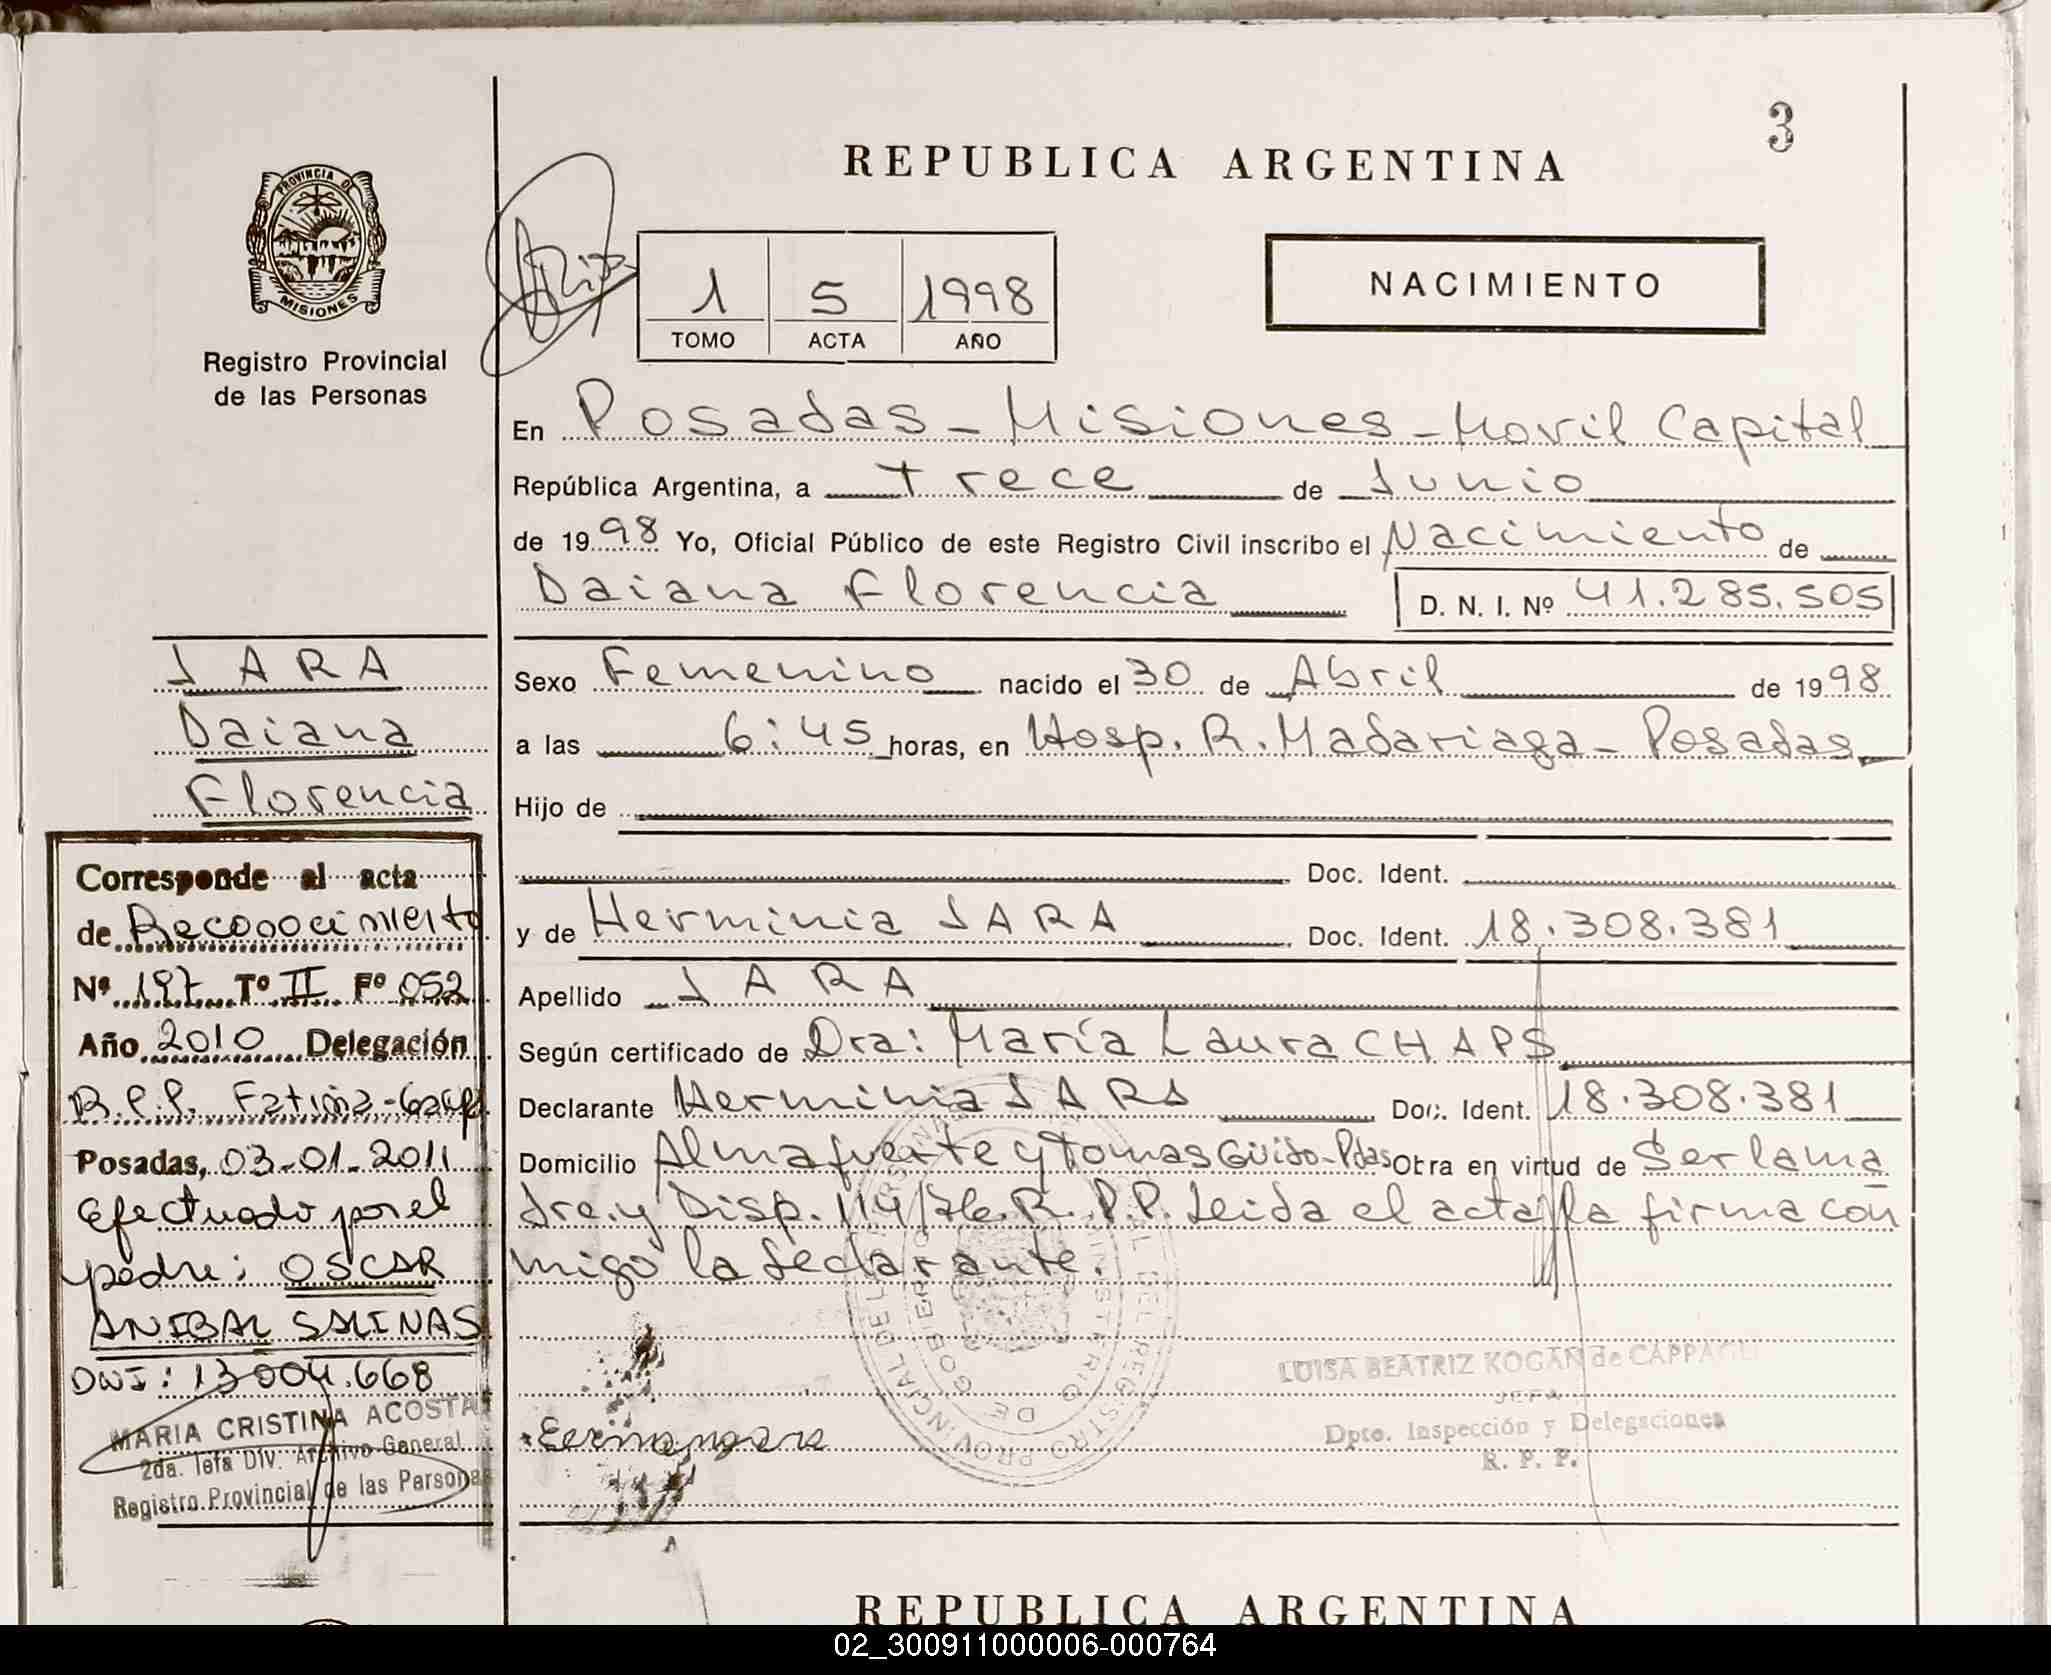 3
REPUBLICA ARGENTINA
PROVINCIA DE
MISIONES
Registro Provincial
de las Personas
1 5 1998
TOMO ACTA AÑO
NACIMIENTO
En Posadas - Misiones - Movil Capital
República Argentina, a trece de Junio
de 1998 Yo, Oficial Público de este Registro Civil inscribo el Nacimiento de
Daiana Florencia D. N. I. Nº 41.285.505
JARA
Daiana
Florencia
Sexo Femenino nacido el 30 de Abril de 1998
a las 6:45 horas, en Hosp. R. Madariaga - Posadas
Hijo de
Doc. Ident.
y de Herminia JARA Doc. Ident. 18.308.381
Apellido JARA
Según certificado de Dra: María Laura CHAPS
Declarante Herminia JARA Doc. Ident. 18.308.381
Domicilio Almafuerte y Tomas Guido - Pdas Obra en virtud de Ser la ma
dre. y Disp. 114/76. R. P. P. Leida el acta la firma con
migo la declarante.
Corresponde al acta
de Reconocimiento
Nº 197 Tº II Fº 052
Año 2010 Delegación
R.P.P. Fatima -
Posadas, 03-01-2011
Efectuado por el
padre: OSCAR
ANIBAL SALINAS
DNI: 13004.668
MARIA CRISTINA ACOSTA
2da. Jefa Div. Archivo General
Registro Provincial de las Personas
LUISA BEATRIZ KOGAN de
JEFA
Dpto. Inspección y Delegaciones
R. P. P.
REPUBLICA ARGENTINA
02_300911000006-000764